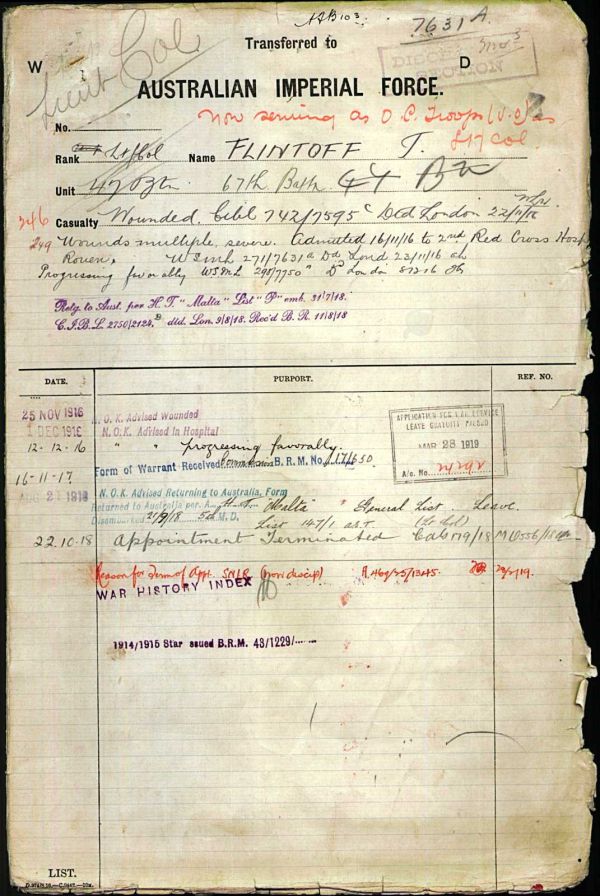 7631A
Transferred to
Lieut Col
W D
AUSTRALIAN IMPERIAL FORCE.
Now serving as O.C. Troops
Lt Col.
No.
Rank Lt/Col Name FLINTOFF T.
Unit 47 Btn 67th Battn
Casualty Wounded. Cibl 742/7595 Dtd London 22/11/16
246
249 Wounds multiple, severe. Admitted 16/11/16 to 2nd Red Cross Hosp
Rouen. WSML 271/7631A Dd Lond 22/11/16
Progressing favorably WSML 298/7750 Dd London 8 12 16
Retg. to Aust. per H.T. "Malta" List "P" emb. 31/7/18.
C.I.B.L. 2750/2124. dtd. Lon. 9/8/18. Rec'd B.R. 11/8/18
DATE. PURPORT. REF. NO.
25 NOV 1916 N.O.K. Advised Wounded
1 DEC 1916 N.O.K. Advised in Hospital
12-12-16 " " progressing favorally.
APPLICATION FOR WAR SERVICE
LEAVE GRATUITY PASSED
MAR 28 1919
A/c. No.
16-11-17. Form of Warrant Received B.R.M. No. 171/650
AUG 21 1918 N.O.K. Advised Returning to Australia, Form
Returned to Australia per "Malta" General List. Leave.
Disembarked 21/9/18 5th M.D. List 147/1 (Lt Col)
22.10.18 Appointment Terminated
Reason for Term of Appt. S.N.L.R. (non discip)
WAR HISTORY INDEX
1914/1915 Star issued B.R.M. 43/1229/
LIST.